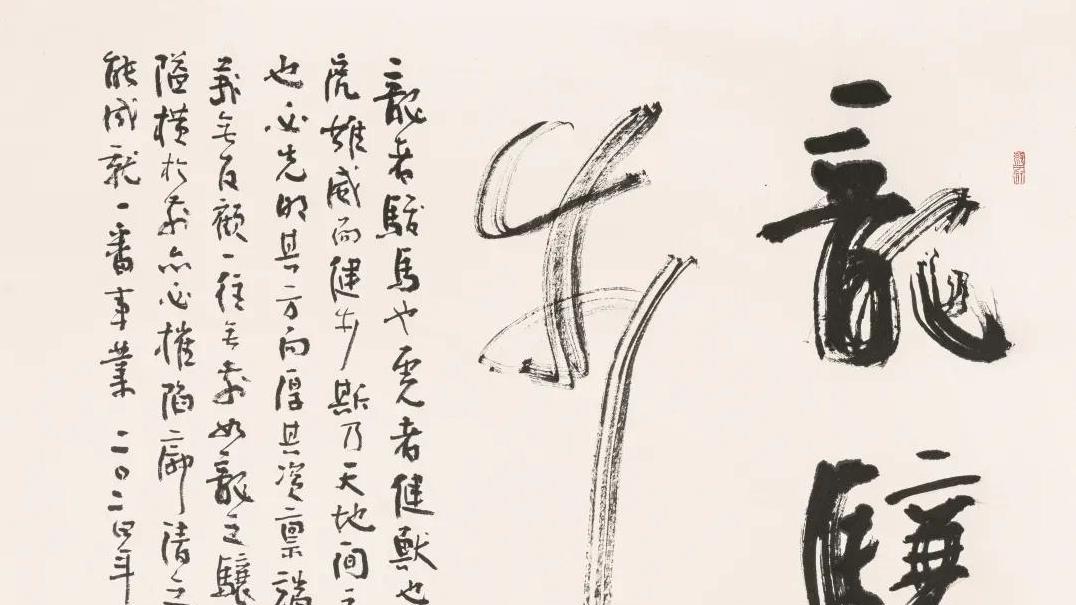 龍驤
步
龍者駿馬也虎者健獸也
虎雄威而健步斯乃天地間
也必先明其方向厚其資稟
義無反顧一往無前如龍之驤
隘橫於前亦必摧陷廓清之
能成就一番事業二〇二四年